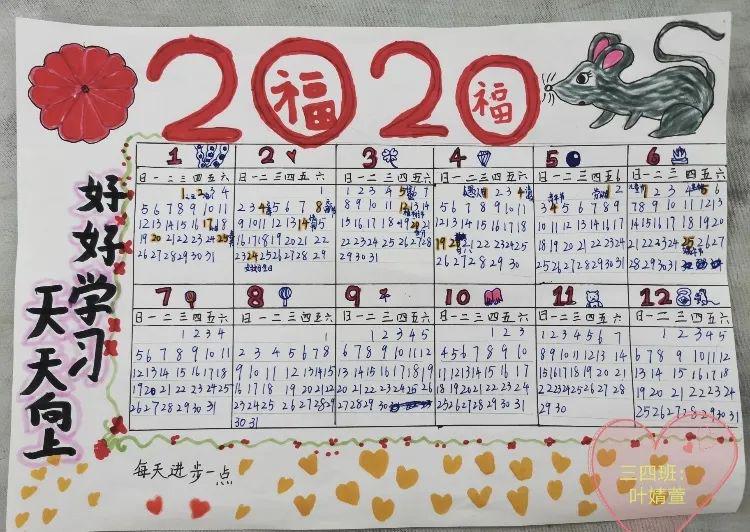 2020
福
福
好好学习
天天向上
1
日一二三四五六
1 2 3 4
5 6 7 8 9 10 11
12 13 14 15 16 17 18
19 20 21 22 23 24 25
26 27 28 29 30 31
2
日一二三四五六
1
2 3 4 5 6 7 8
9 10 11 12 13 14 15
16 17 18 19 20 21 22
23 24 25 26 27 28 29
3
日一二三四五六
1 2 3 4 5 6 7
8 9 10 11 12 13 14
15 16 17 18 19 20 21
22 23 24 25 26 27 28
29 30 31
4
日一二三四五六
1 2 3 4
5 6 7 8 9 10 11
12 13 14 15 16 17 18
19 20 21 22 23 24 25
26 27 28 29 30
5
日一二三四五6
1 2
3 4 5 6 7 8 9
10 11 12 13 14 15 16 17
18 19 20 21 22 23 24
25 26 27 28 29 30 31
6
日一二三四五六
1 2 3 4 5 6
7 8 9 10 11 12 13
14 15 16 17 18 19 20
21 22 23 24 25 26 27
28 29 30
7
日一二三四五六
1 2 3 4
5 6 7 8 9 10 11
12 13 14 15 16 17 18
19 20 21 22 23 24 25
26 27 28 29 30 31
8
日一二三四五六
1
2 3 4 5 6 7 8
9 10 11 12 13 14 15
16 17 18 19 20 21 22
23 24 25 26 27 28 29
30 31
9
日一二三四五六
1 2 3 4 5
6 7 8 9 10 11 12
13 14 15 16 17 18 19
20 21 22 23 24 25 26
27 28 29 30
10
日一二三四五六
1 2 3
4 5 6 7 8 9 10
11 12 13 14 15 16 17
18 19 20 21 22 23 24
25 26 27 28 29 30 31
11
日一二三四五六
1 2 3 4 5 6 7
8 9 10 11 12 13 14
15 16 17 18 19 20 21
22 23 24 25 26 27 28
29 30
12
日一二三四五六
1 2 3 4 5
6 7 8 9 10 11 12
13 14 15 16 17 18
19 20 21 22 23 24
25 26 27 28 29 30 31
每天进步一点
三四班：
叶婧萱